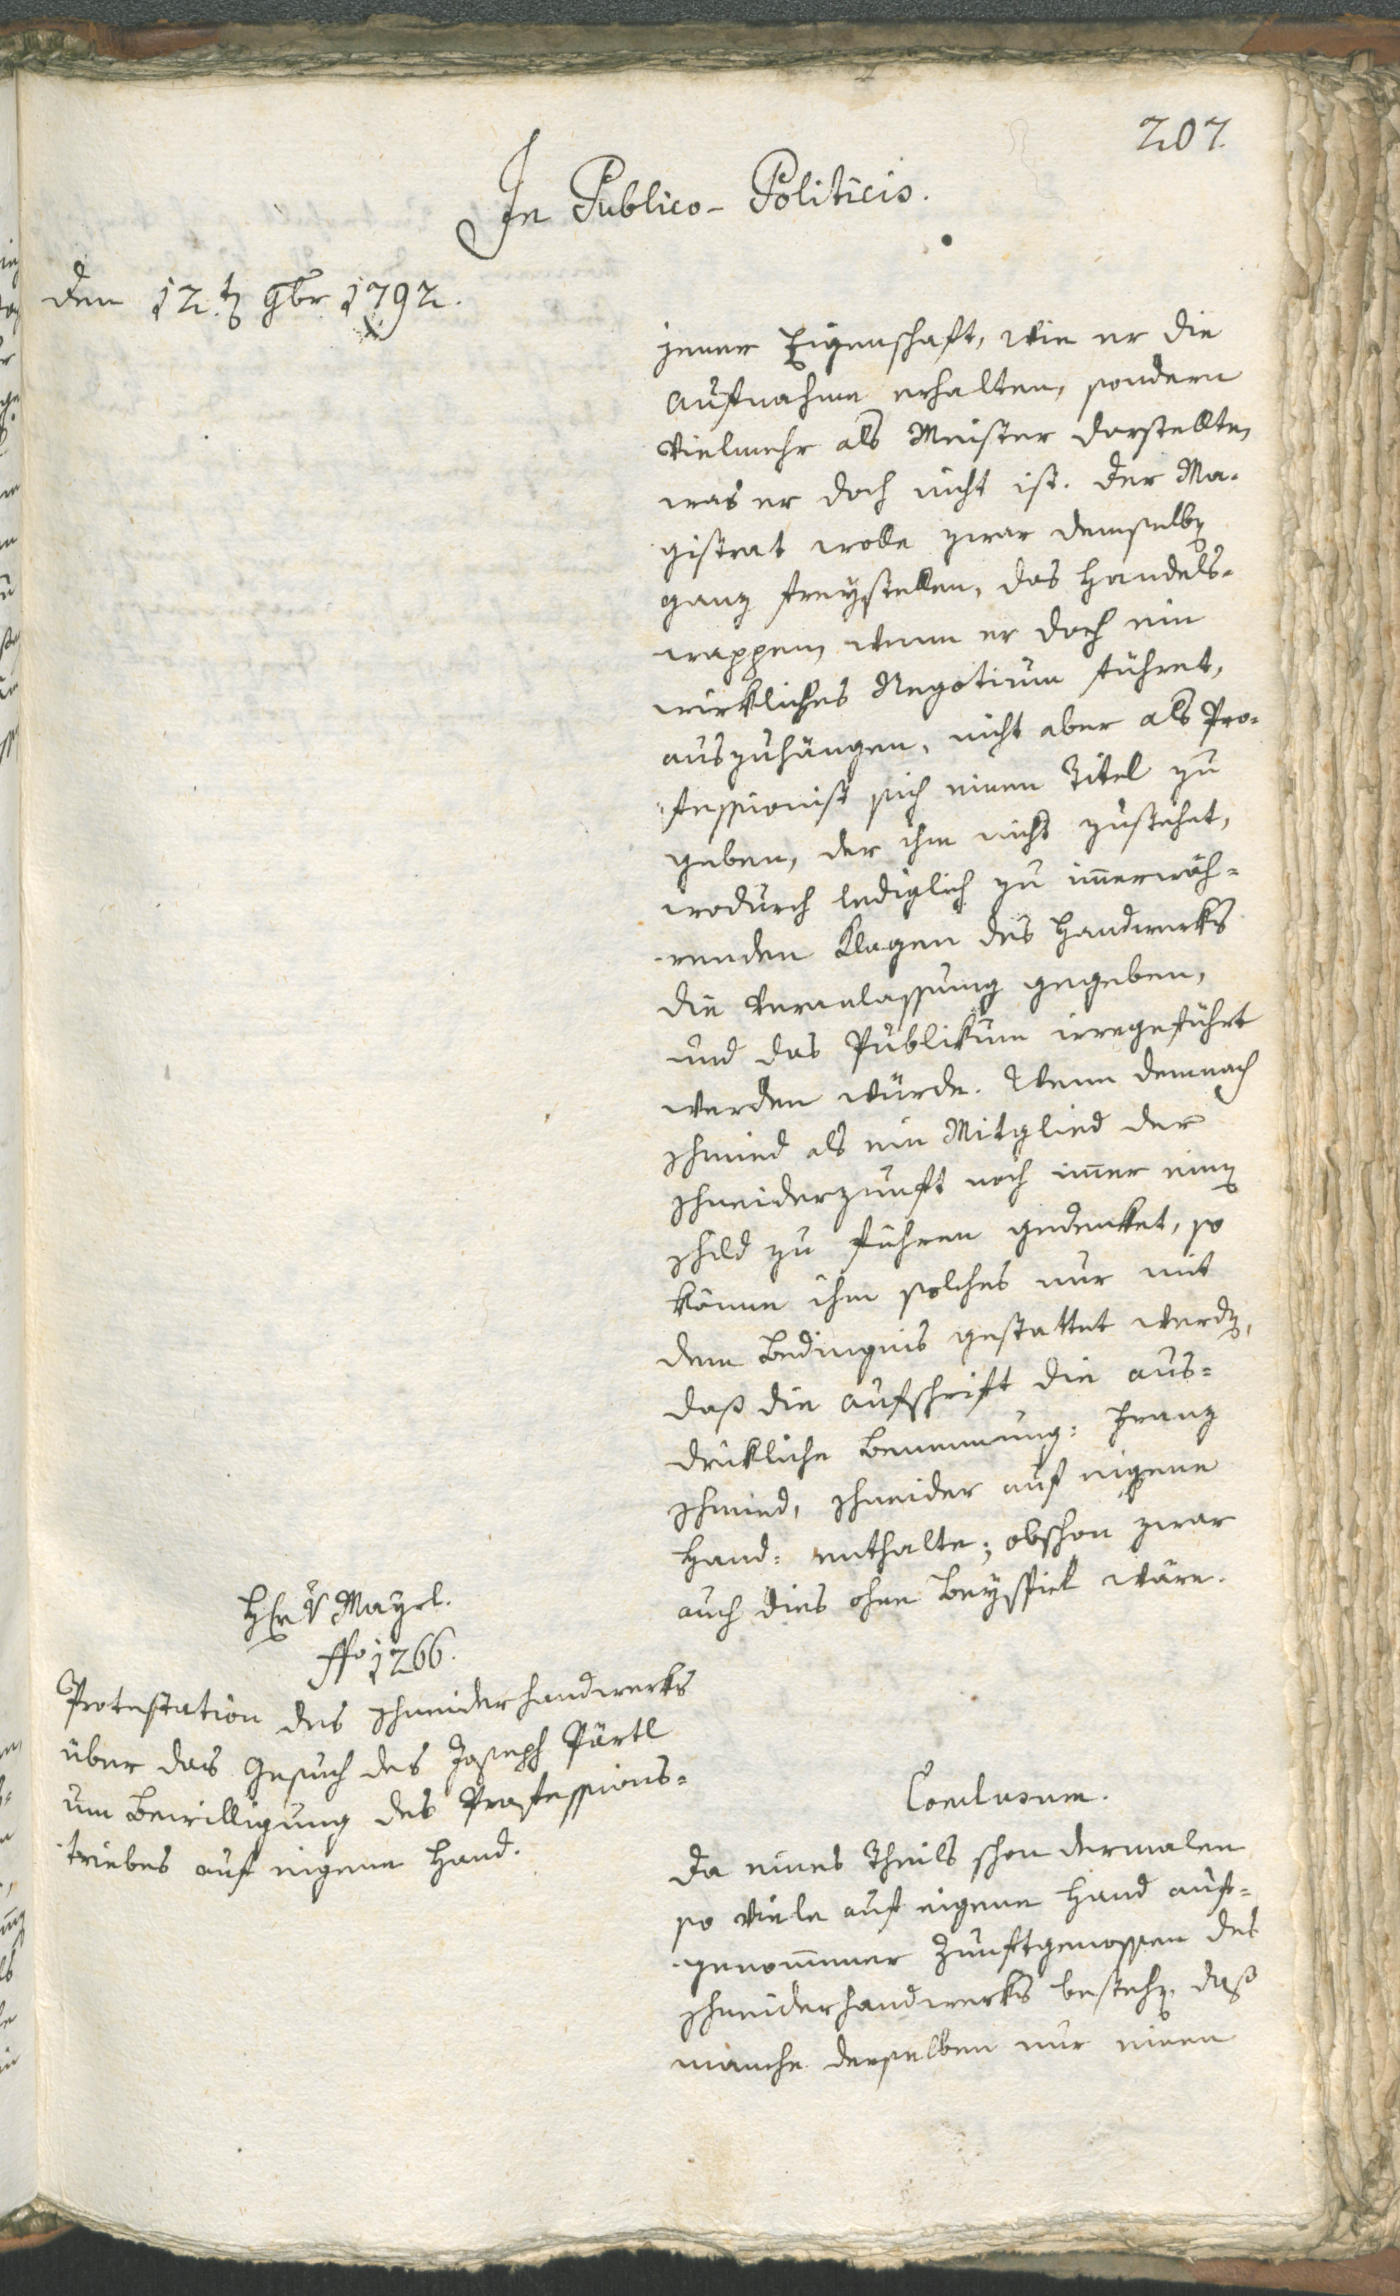 207.
In Publico-Politicis.
den 12.t 9br 1792.
jener Eigenschaft, wie er die
Aufnahme erhalten, sondern
vielmehr als Meister darstellte,
was er doch nicht ist. Der Ma-
gistrat wolle zwar demselb
ganz freystellen, das Handels-
wappen, wenn er doch ein
wirkliches Negotium führet,
auszuhängen, nicht aber als Pro-
fessionist sich einen Titel zu
geben, der ihm nicht zustehet,
wodurch lediglich zu im̄erwäh-
renden Klagen des Handwerks
die Veranlassung gegeben,
und das Publikum irregeführt
werden würde. Wenn demnach
Schmied als ein Mitglied der
Schneiderzunft noch im̄er ein
Schild zu führen gedenket, so
könne ihm solches nur mit
dem Bedingnis gestattet werd,
daß die Aufschrift die aus-
drükliche Benennung: Franz
Schmied, Schneider auf eigene
Hand: enthalte; obschon zwar
auch dies ohne Beyspiel wäre.
Mayrl.
1266.
Protestation des Schneiderhandwerks
über das Gesuch des Joseph Pärtl
um Bewilligung des Professions-
triebes auf eigene Hand.
Conclusum.
Da eines Theils schon dermalen
so viele auf eigene Hand auf-
genom̄ener Zunftgenossen des
Schneiderhandwerks besteh, daß
manche derselben nur einen